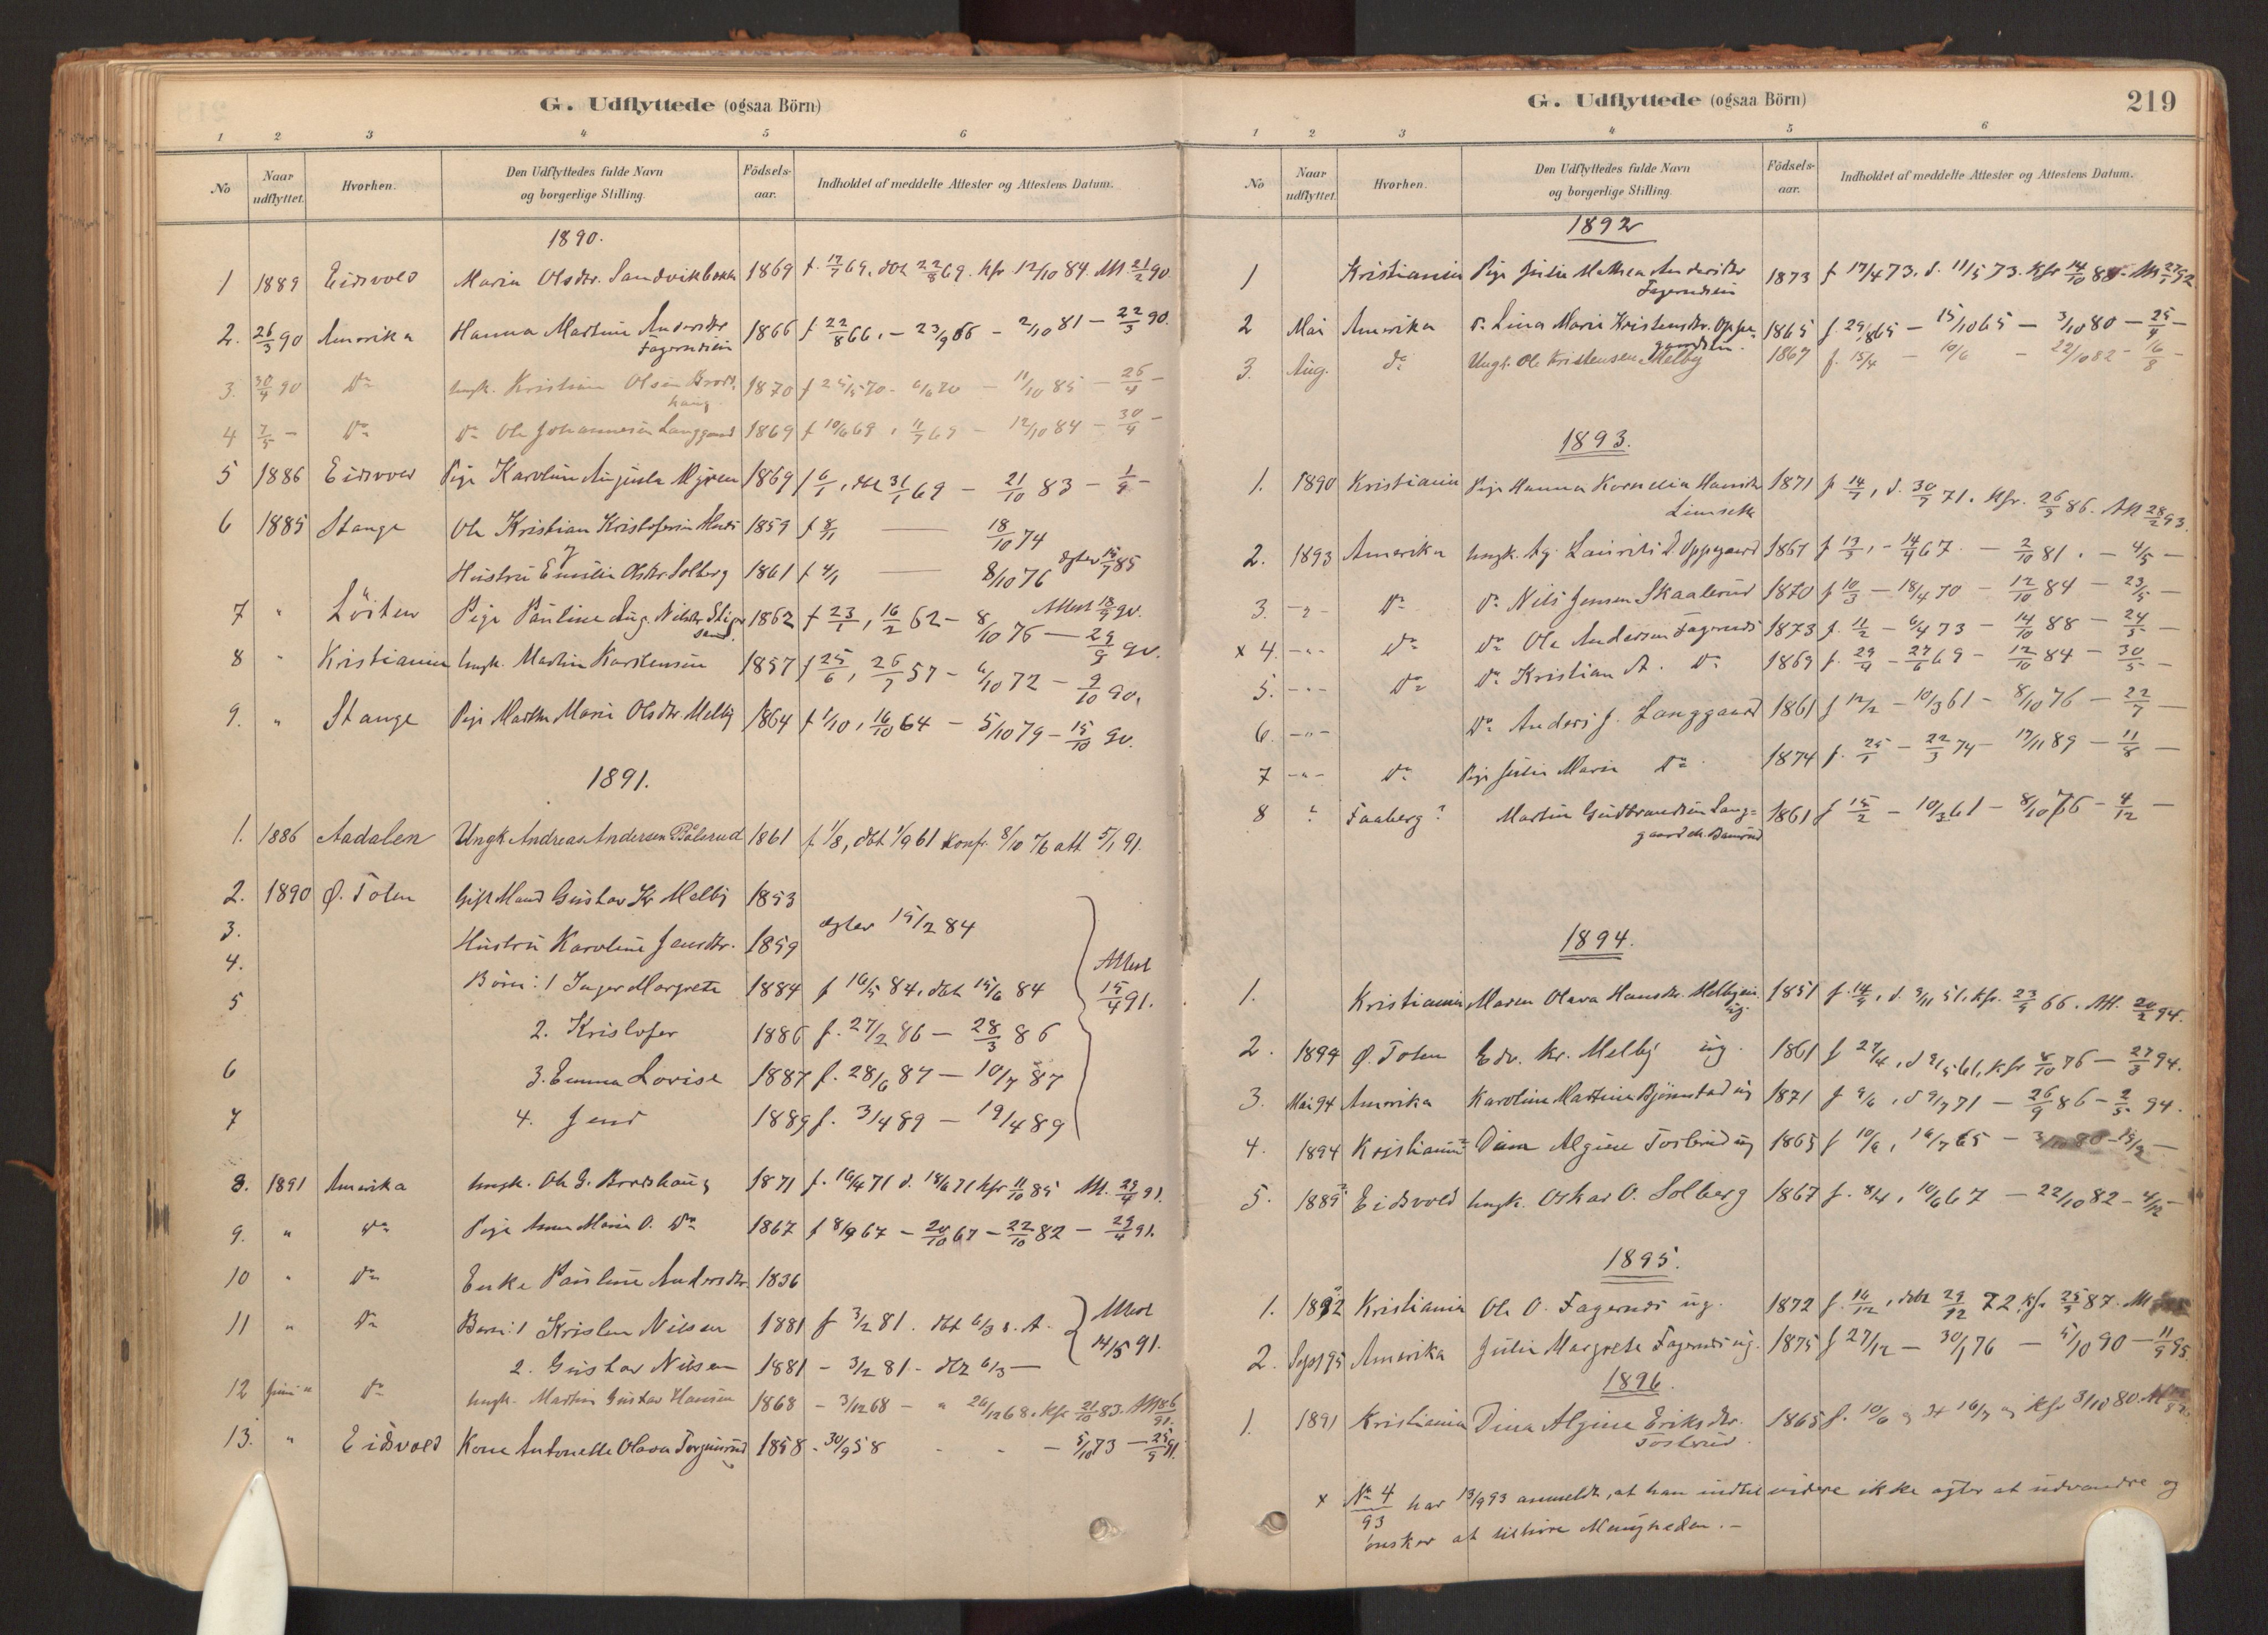 G. Udflyttede (ogsaa Börn)
1 2 3 4 5 6
No Naar udflyttet. Hvorhen. Den Udflyttedes fulde Navn og borgerlige Stilling. Födsels-aar. Indholdet af meddelte Attester og Attestens Datum.
1890.
1 1889 Eidsvold Maria Olsdtr. Sandvikbakk 1869 f. 17/7 69. døbt 22/8 69. Kfr 12/10 84. Att. 21/2 90
2. 26/3 90 Amerika Hanna Martine Andersdtr 1866 f 22/8 66. – 23/9 66 – 2/10 81 – 22/3 90.
Fagerndsein
3. 30/4 90 Do Ungk. Kristian Olsen Brods- 1870 f 25/5 70 – 6/6 70 – 11/10 85 – 26/4 –
haug
4 7/5 – Do Do Ole Johannesen Langgaard 1869 f 10/6 69, 11/7 69 – 12/10 84 – 30/4 –
5 1886 Eidsvold Pige Karoline Augusta Myren 1869 f 6/1, døbt 31/1 69 – 21/10 83 – 1/9 –
6 1885 Stange Ole Kristian Kristofersen 1859 f 8/1 — 18/10 74
Hustru Emilie Olsdtr Solberg 1861 f 4/1 — 8/10 76 Egtev 15/7 85
7 " Löiten Pige Pauline Aug. Nilsdtr Stiger 1862 f 23/1, 16/2 62 – 8/10 76 – Attest 18/9 90.
sand.
8 " Kristiania Ungk. Martin Karstensen 1857 f 25/6, 26/7 57 – 6/10 72 – 9/10 90.
29/9 90.
9. " Stange Pige Marthe Marie Olsdtr. Melby 1864 f 1/10, 16/10 64 – 5/10 79 – 15/10 90.
1891.
1. 1886 Aadalen Ungk Andreas Andersen Pålerud 1861 f. 1/8, dbt 1/9 61 Konfr. 8/10 76 att 5/1 91.
2. 1890 Ø. Toten Gift Mand Gustav Kr Melby 1853
3. Hustru Karoline Jensdtr. 1859 Egtev 15/2 84
4. Børn: 1 Inger Margrete 1884 f 16/5 84, døbt 15/6 84 Attest 15/4 91.
5 2. Kristofer 1886 f. 27/2 86 – 28/3 86
6 3. Emma Lovise 1887 f. 28/6 87 – 10/7 87
7 4. Jens 1889 f. 3/4 89 – 19/4 89
8. 1891 Amerika Ungk. Ole G. Brodshaug 1871 f. 16/4 71 d. 18/6 71 Kfr 11/10 85 Att. 29/4 91.
9. " Do Pige Anne Marie O. Do 1867 f 8/9 67 – 20/10 67 – 22/10 82 – 29/4 91.
10 " Do Enke Pauline Andersdtr. 1836
11 " Do Børn: 1 Kristen Nilsen 1881 f 3/2 81. døbt 6/3 s. A. Attest 14/5 91.
2. Gustav Nilsen 1881 – 3/2 81 – døbt 6/3 —
12 Juni " Do Ungk. Martin Gustav Hansen 1868 – 3/12 68 – " 26/12 68. Kfr 21/10 83. Att 18/6 91.
13. " Eidsvold Kone Antonette Olava Torgunrud 1858 – 30/9 58 – – – 5/10 73 – 25/9 91.
G. Udflyttede (ogsaa Börn) 219
1 2 3 4 5 6
No Naar udflyttet. Hvorhen. Den Udflyttedes fulde Navn og borgerlige Stilling. Födsels-aar. Indholdet af meddelte Attester og Attestens Datum.
1892
1 Kristiania Pige Julie Mathea Andersdtr 1873 f 17/4 73. d. 11/5 73. Kfr 14/10 88. Att 27/5 92
Fagerndsein
2 Mai Amerika Do Lina Marie Kristensdtr. Oppe- 1865 f 29/8 65 – 15/10 65 – 3/10 80 – 25/4 –
gaardsein.
3. Aug. Do Ungk. Ole Kristensen Melby 1867 f. 15/4 – 10/6 – 22/10 82 – 16/8 –
1893.
1. 1890 Kristiania Pige Hanna Kornelia Hansdtr 1871 f 14/7, d. 30/7 71. Kfr. 26/9 86. Att 28/2 93.
Limsett
2. 1893 Amerika Ungk. Ag. Laurits P. Oppegaard 1867 f 13/3, – 14/4 67 – 2/10 81. – 4/5 –
3. – " – Do Do Nils Jensen Skaalerud 1870 f 10/3 – 18/4 70 – 12/10 84 – 23/5 –
x 4. – " – Do Do Ole Andersen Fagernds 1873 f. 11/2 – 6/4 73 – 14/10 88 – 24/5 –
5. – " – Do Do Kristian A. Do 1869 f. 29/4 – 27/6 69 – 12/10 84 – 30/5 –
6. – " – Do Anders J. Langgaard 1861 f 12/2 – 10/3 61 – 8/10 76 – 22/7 –
7 – " – Do Pige Julie Marie Do 1874 f. 25/1 – 22/3 74 – 17/11 89 – 11/8 –
8 ? Faaberg? Martin Gudbrandsen Lang- 1861 f 15/2 – 10/3 61 – 8/10 76 – 4/12 –
gaard
1894.
1. Kristiania Maren Olava Hansdtr. Melbyein 1851 f. 14/9, d. 9/11 51, Kfr. 23/9 66. Att. 20/2 94.
ug.
2. 1894 Ø. Toten Edv. Kr. Melby ug. 1861 f 27/4, d 9/5 61, Kfr 8/10 76 – 27/3 94.
3. Mai 94 Amerika Karoline Martine Bjørnstad ug 1871 f 9/6, d 9/7 71 – 26/9 86 – 2/5 94.
4. 1894 Kristiania Dina Algine Tosterud ug 1865 f 10/6, 16/7 65 – 3/10 80 –
5. 1889? Eidsvold Ungk. Oskar O. Solberg 1867 f. 8/4, 10/6 67 – 22/10 82 – 4/12 –
1895.
1. 1892? Kristiania Ole O. Fagernds ug. 1872 f. 16/12, døbt 29/12 72, Kfr. 25/9 87.
2. Sept 95 Amerika Julie Margrete Fagernds ug. 1875 f 27/12 – 30/1 76 – 5/10 90 – 11/9 95.
1896.
1. 1891 Kristiania Dina Algine Eriksdtr. 1865 f. 10/6 16/7 Kfr 3/10 80.
Tosterud.
x No 4/93 har 13/9 93 anmeldt, at han indtil videre ikke agter at udvandre og
ønsker at tilhøre Menigheden. –